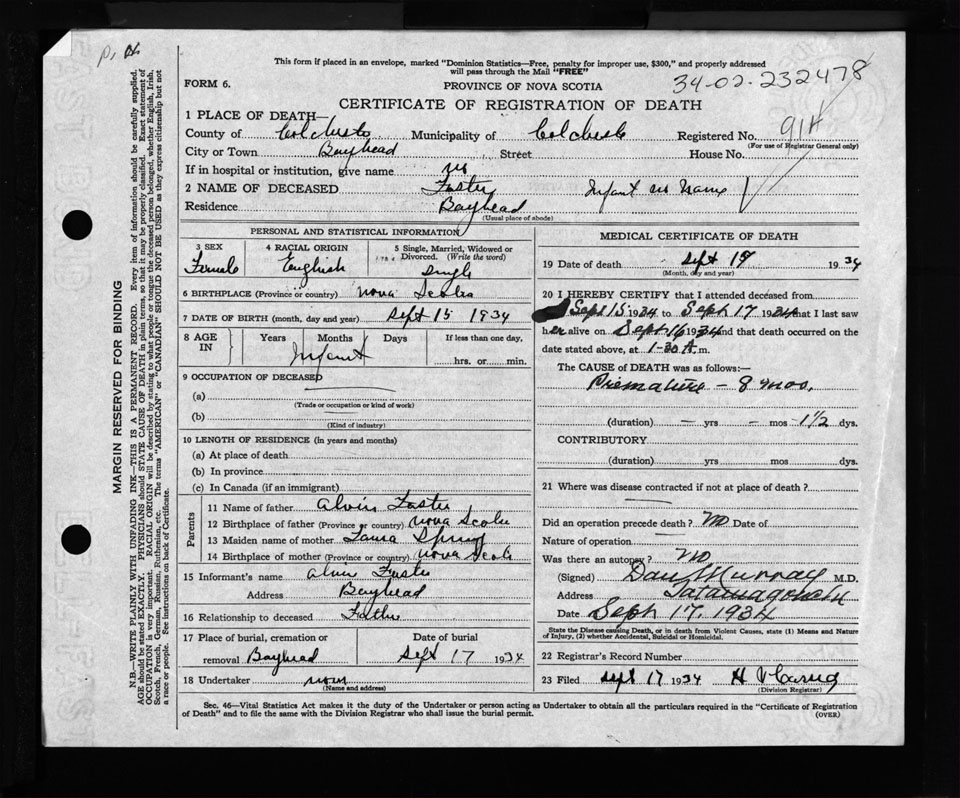 This form if placed in an envelope, marked "Dominion Statistics—Free, penalty for improper use, $300," and properly addressed
will pass through the Mail "FREE"
FORM 6.
PROVINCE OF NOVA SCOTIA
34-02-232478
CERTIFICATE OF REGISTRATION OF DEATH
1 PLACE OF DEATH—
County of Colchester Municipality of Colchester Registered No. 914
(For use of Registrar General only)
City or Town Bayhead Street House No.
If in hospital or institution, give name no
2 NAME OF DECEASED Foster Infant no Name
Residence Bayhead
(Usual place of abode)
PERSONAL AND STATISTICAL INFORMATION
3 SEX Female
4 RACIAL ORIGIN English
5 Single, Married, Widowed or Divorced. (Write the word) Single
6 BIRTHPLACE (Province or country) Nova Scotia
7 DATE OF BIRTH (month, day and year) Sept 15 1934
8 AGE IN Years Months Days If less than one day,
Infant hrs. or min.
9 OCCUPATION OF DECEASED
(a)
(Trade or occupation or kind of work)
(b)
(Kind of industry)
10 LENGTH OF RESIDENCE (in years and months)
(a) At place of death
(b) In province
(c) In Canada (if an immigrant)
Parents
11 Name of father Alvin Foster
12 Birthplace of father (Province or country) Nova Scotia
13 Maiden name of mother Laura
14 Birthplace of mother (Province or country) Nova Scotia
15 Informant's name Alvin Foster
Address Bayhead
16 Relationship to deceased Father
17 Place of burial, cremation or removal Bayhead
Date of burial Sept 17 1934
18 Undertaker none
(Name and address)
MEDICAL CERTIFICATE OF DEATH
19 Date of death Sept 17 1934
(Month, day and year)
20 I HEREBY CERTIFY that I attended deceased from
Sept 15 1934 to Sept 17 1934 that I last saw
her alive on Sept 16 1934 and that death occurred on
date stated above, at 1-30 A.m.
The CAUSE of DEATH was as follows:—
Premature — 8 mos.
(duration) — yrs — mos -1½ dys.
CONTRIBUTORY
(duration) yrs mos dys.
21 Where was disease contracted if not at place of death?
Did an operation precede death? No Date of
Nature of operation
Was there an autopsy? No
(Signed) Dan Murray M.D.
Address Tatamagouche
Date Sept 17, 1934
State the Disease causing Death, or in death from Violent Causes, state (1) Means and Nature
of Injury, (2) whether Accidental, Suicidal or Homicidal.
22 Registrar's Record Number
23 Filed Sept 17 1934 H V
(Division Registrar)
Sec. 46—Vital Statistics Act makes it the duty of the Undertaker or person acting as Undertaker to obtain all the particulars required in the "Certificate of Registration
of Death" and to file the same with the Division Registrar who shall issue the burial permit.
(OVER)
MARGIN RESERVED FOR BINDING
N.B.—WRITE PLAINLY WITH UNFADING INK—THIS IS A PERMANENT RECORD. Every item of information should be carefully supplied.
AGE should be stated EXACTLY. PHYSICIANS should STATE CAUSE OF DEATH in plain terms, so that it may be properly classified. Exact statement of
OCCUPATION is very important. RACIAL ORIGIN will be described by stating to what people or tongue the deceased person belonged, whether English, Irish,
Scotch, French, German, Russian, Ruthenian, etc. The terms "AMERICAN" or "CANADIAN" SHOULD NOT BE USED as they express citizenship but not
a race or people. See instructions on back of Certificate.